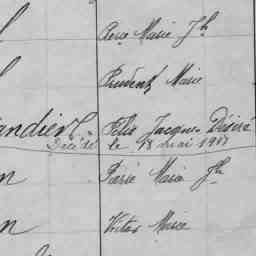 Marie Jh
Prudent Marie
andier Félix Jacques Désiré
Décédé le 18 mai 1918
Pierre Marie Jh
Marie